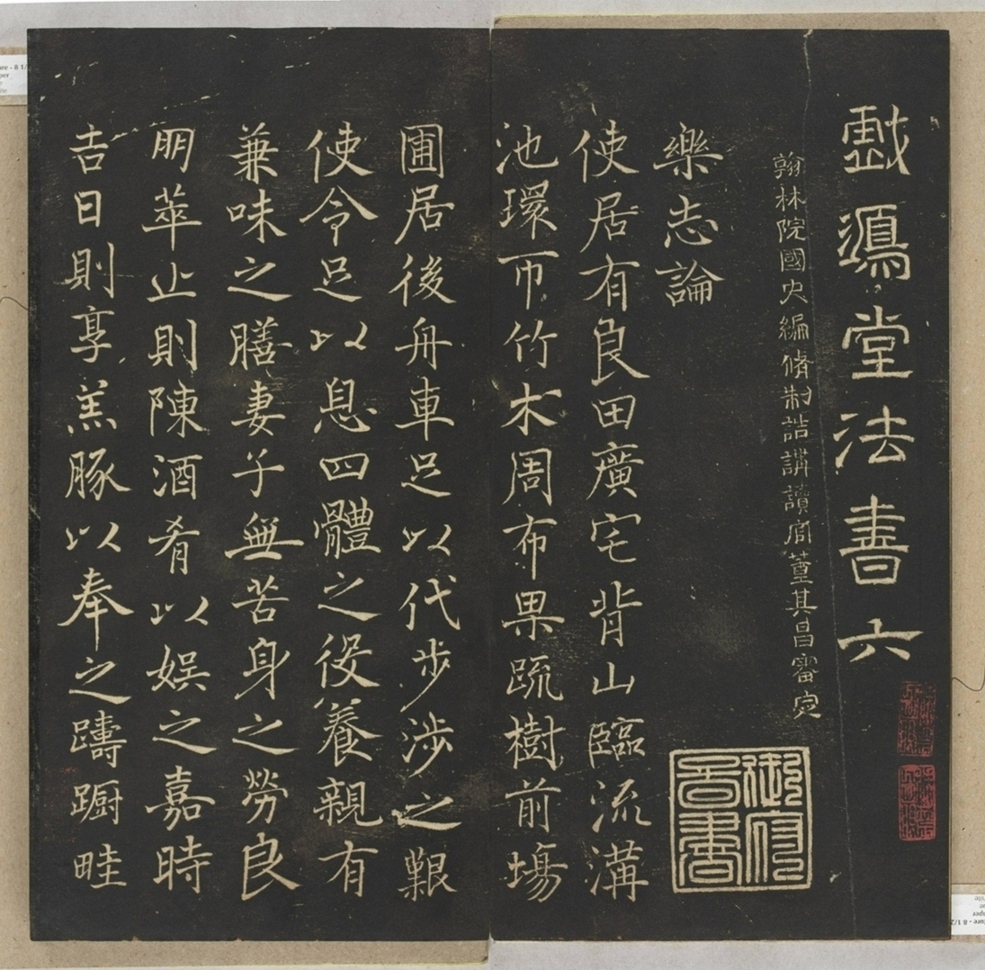 戲鴻堂法書六
翰林院國史編脩制誥講讀官董其昌審定
御府啚書
樂志論
使居有良田廣宅背山臨流溝
池環帀竹木周布果蔬樹前塲
圃居後舟車足以代步涉之艱
使令足以息四體之役養親有
兼味之膳妻子無苦身之勞良
朋萃止則陳酒肴以娛之嘉時
吉日則享羔豚以奉之躊躕畦